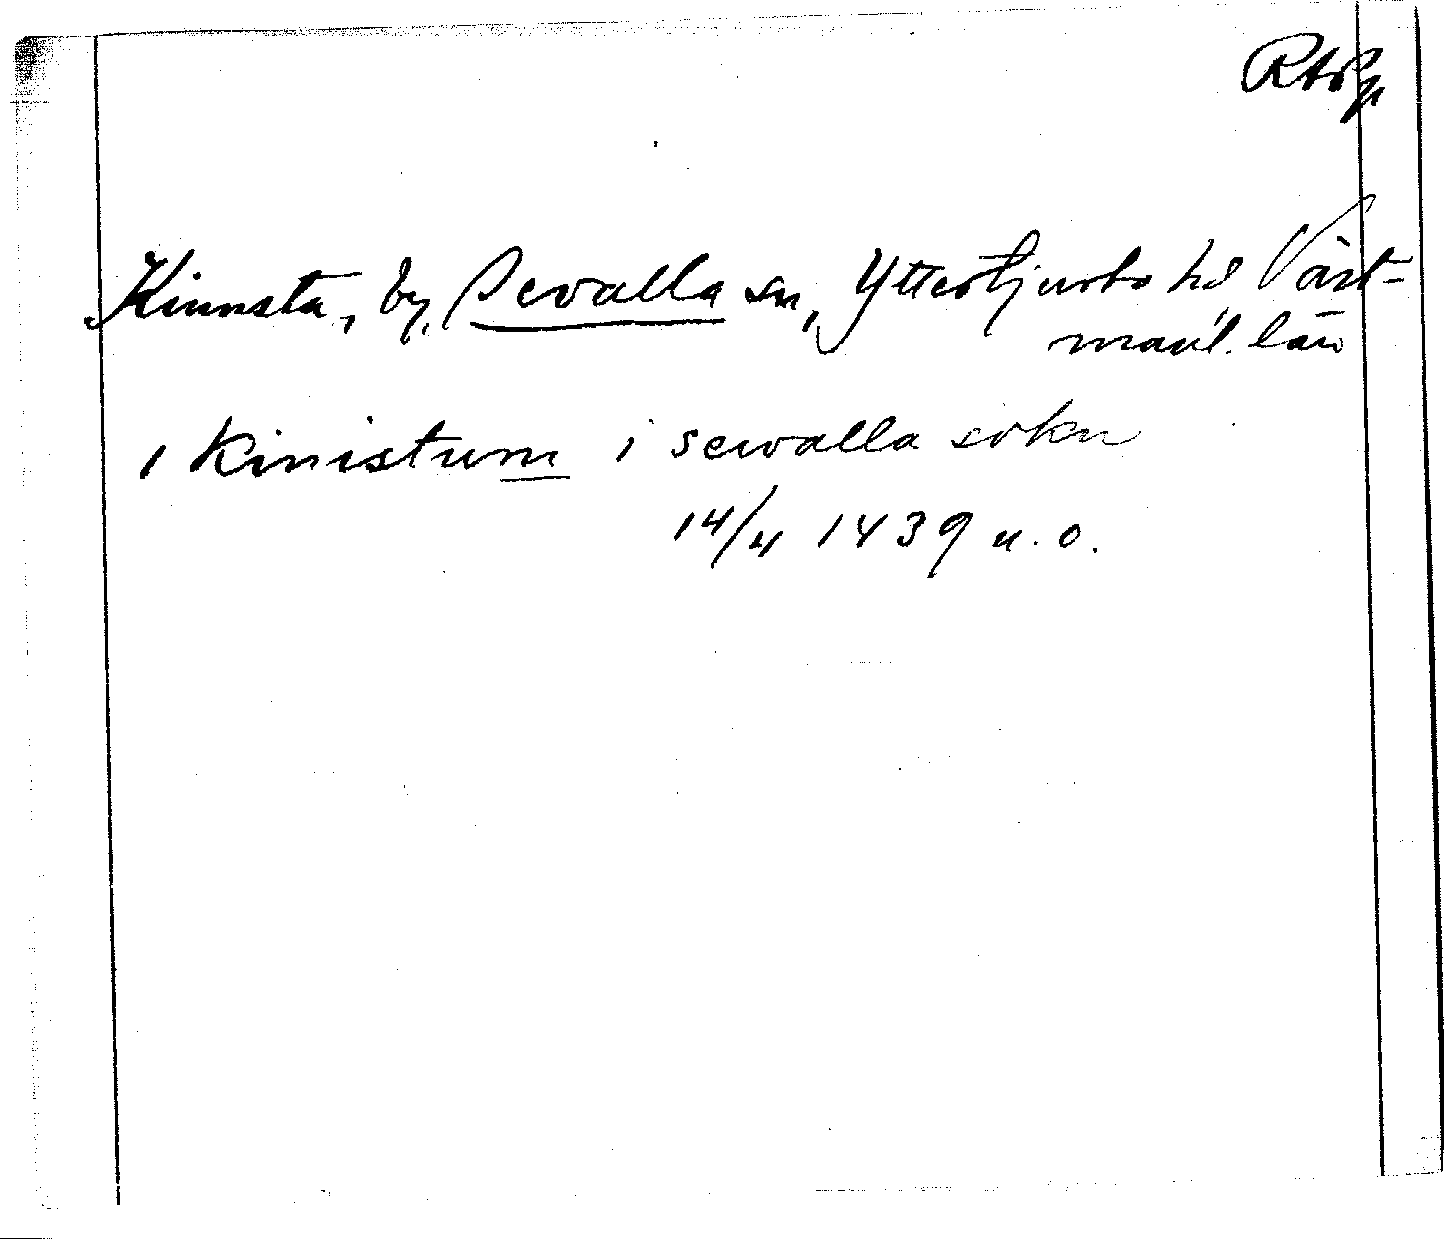 Kinnsta, by, Sevalla sn, Yttertjurbo hd Väst-
manl. län
i Kinistum i sewalla sokn
14/4 1439 u. o.